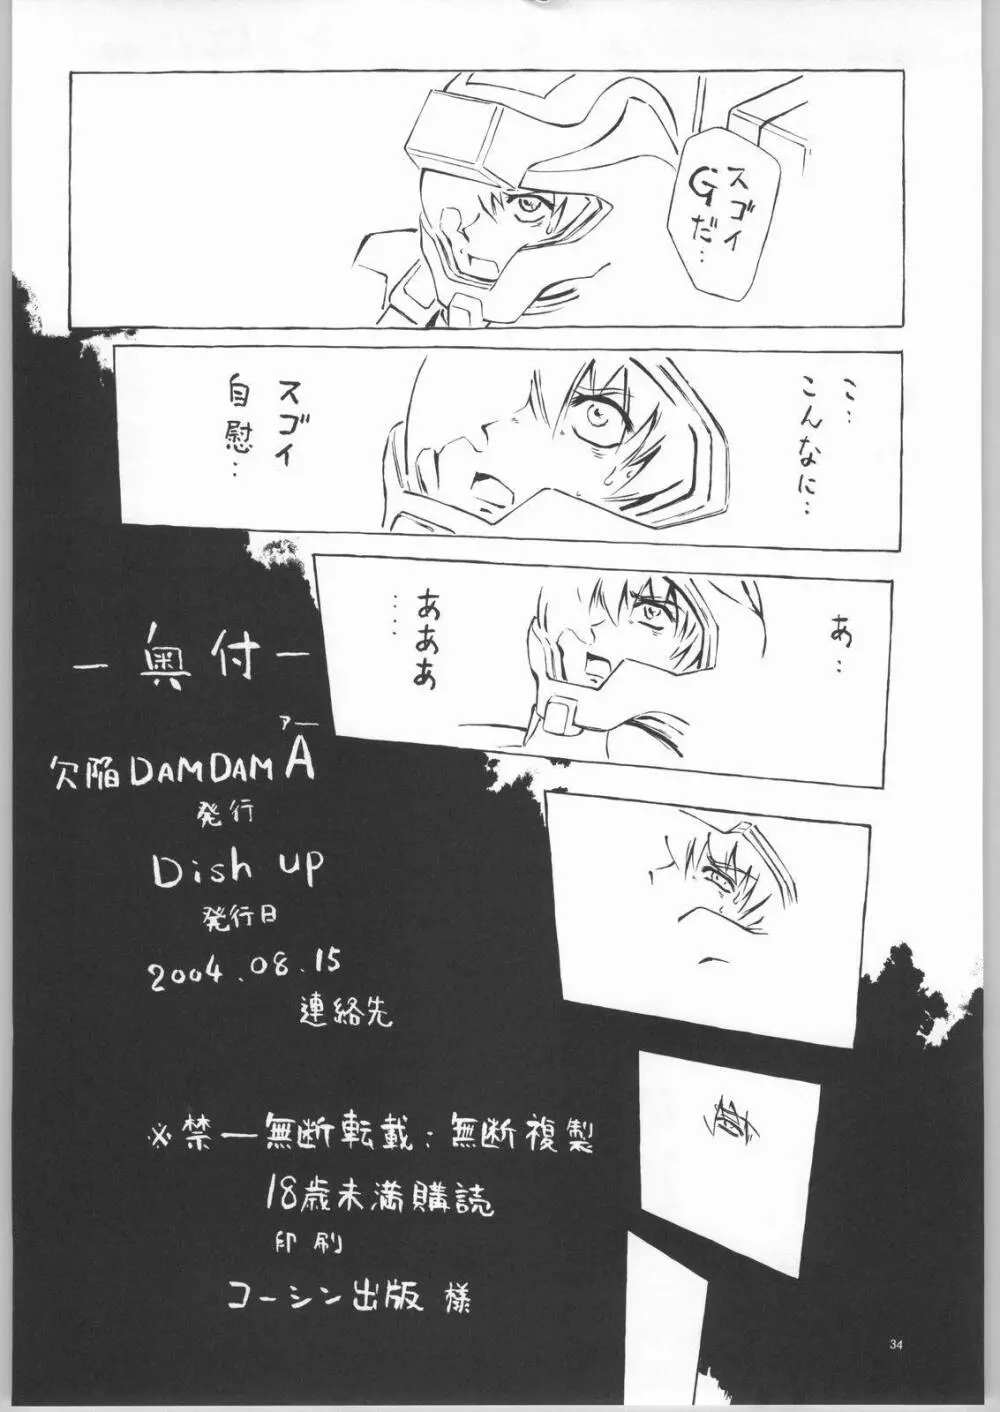 スゴイ
Gだ…
こ…
こんなに…
スゴイ
自慰…
あ…
あああ
……
ー奥付ー
アー
欠陥DAMDAM A
発行
Dish up
発行日
2004.08.15
連絡先
※禁ー無断転載:無断複製
18歳未満購読
印刷
コーシン出版 様
34